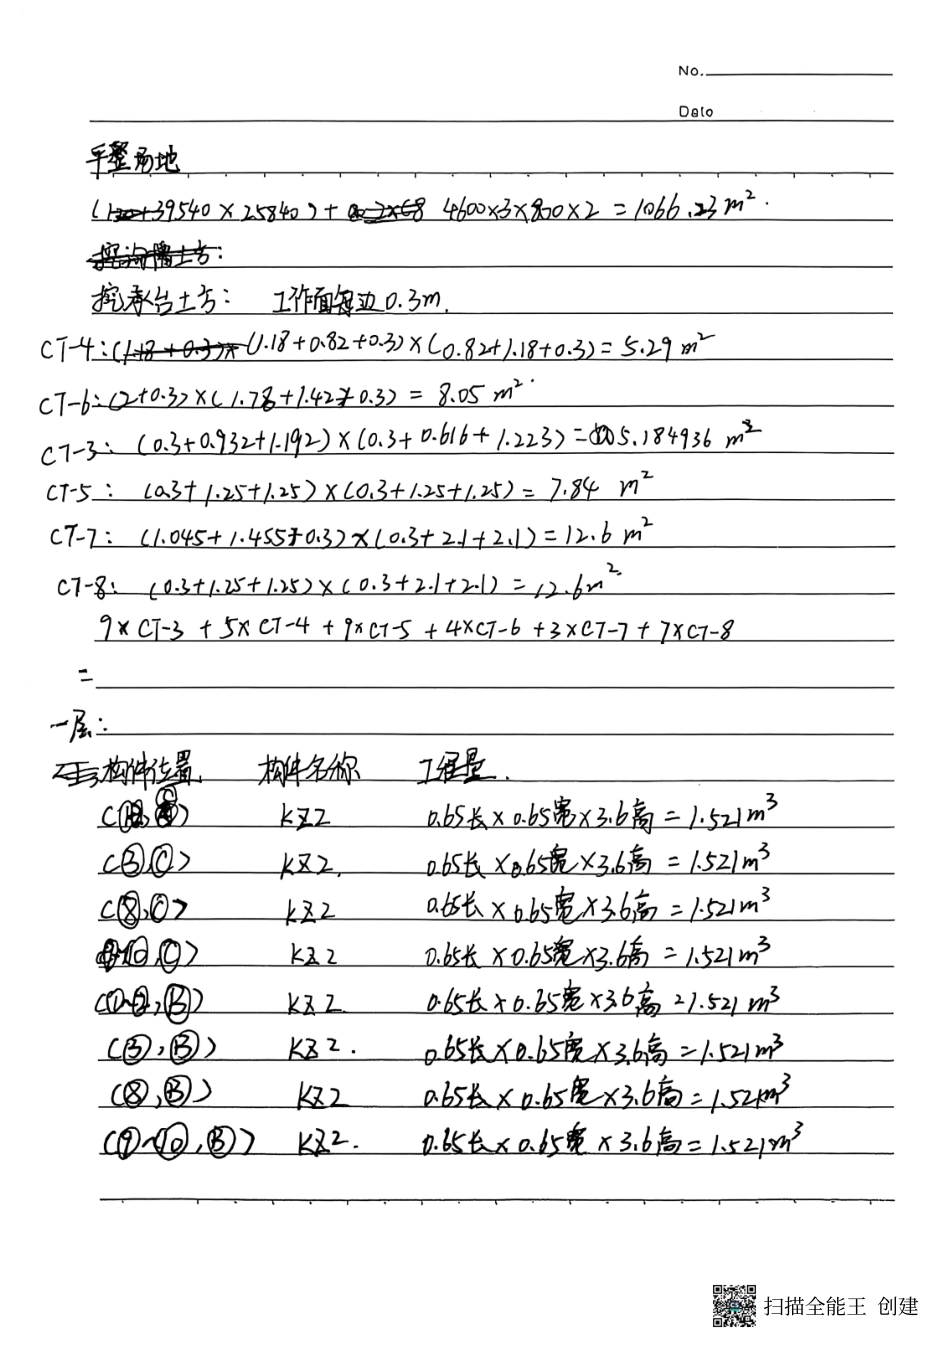 No.
Date
平整场地
(39540×25840)+ 4600×3×800×2=1066.23m².
挖承台土方: 工作面每边0.3m.
CT-4:(1.18+0.82+0.3)×(0.82+1.18+0.3)=5.29m²
CT-6:(2+0.3)×(1.78+1.42+0.3)=8.05m²
CT-3:(0.3+0.932+1.192)×(0.3+0.616+1.223)=5.184936m²
CT-5:(0.3+1.25+1.25)×(0.3+1.25+1.25)=7.84 m²
CT-7:(1.045+1.455+0.3)×(0.3+2.1+2.1)=12.6m²
CT-8:(0.3+1.25+1.25)×(0.3+2.1+2.1)=12.6m²
9×CT-3+5×CT-4+9×CT-5+4×CT-6+3×CT-7+7×CT-8
=
一层:
构件位置 构件名称 工程量.
KZ2 0.65长×0.65宽×3.6高=1.521m³
(③,Ⓒ) KZ2. 0.65长×0.65宽×3.6高=1.521m³
(⑧,Ⓒ) KZ2 0.65长×0.65宽×3.6高=1.521m³
⑩,Ⓒ) KZ2 0.65长×0.65宽×3.6高=1.521m³
(①~②,Ⓑ) KZ2 0.65长×0.65宽×3.6高=1.521m³
(③,Ⓑ) KZ2. 0.65长×0.65宽×3.6高=1.521m³
(⑧,Ⓑ) KZ2 0.65长×0.65宽×3.6高=1.521m³
(⑨~⑩,Ⓑ) KZ2. 0.65长×0.65宽×3.6高=1.521m³
扫描全能王 创建